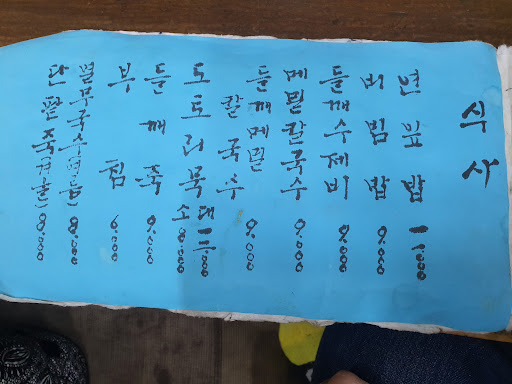 식사
연잎밥 11,000
비빔밥 9,000
들깨수제비 9,000
메밀칼국수 9,000
들깨메밀칼국수 9,000
도토리묵 대
소 8,000
들깨죽 9,000
부침 6,000
열무국수(여름) 8,000
단팥죽(겨울) 8,000